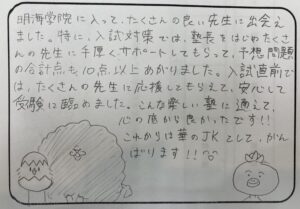 明海学院に入って、たくさんの良い先生に出会え
ました。特に、入試対策では、塾長をはじめたくさ
んの先生に手厚くサポートしてもらって、予想問題
の合計点も10点以上あがりました。入試直前で
は、たくさんの先生に応援してもらえて、安心して
受験に臨めました。こんな楽しい塾に通えて、
心の底から良かったです!!
これからは華のJKとして、がん
ばります!!